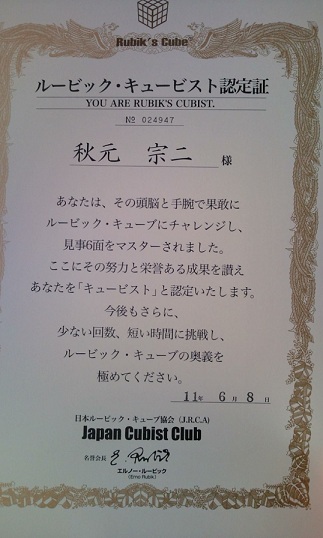 Rubik's Cube
ルービック・キュービスト認定証
YOU ARE RUBIK'S CUBIST.
№ 024947
秋元 宗二 様
あなたは、その頭脳と手腕で果敢に
ルービック・キューブにチャレンジし、
見事6面をマスターされました。
ここにその努力と栄誉ある成果を讃え
あなたを「キュービスト」と認定いたします。
今後もさらに、
少ない回数、短い時間に挑戦し、
ルービック・キューブの奥義を
極めてください。
11年 6月 8日
日本ルービック・キューブ協会 (J.R.C.A)
Japan Cubist Club
名誉会長 E. Rubik
エルノー・ルービック
(Erno Rubik)